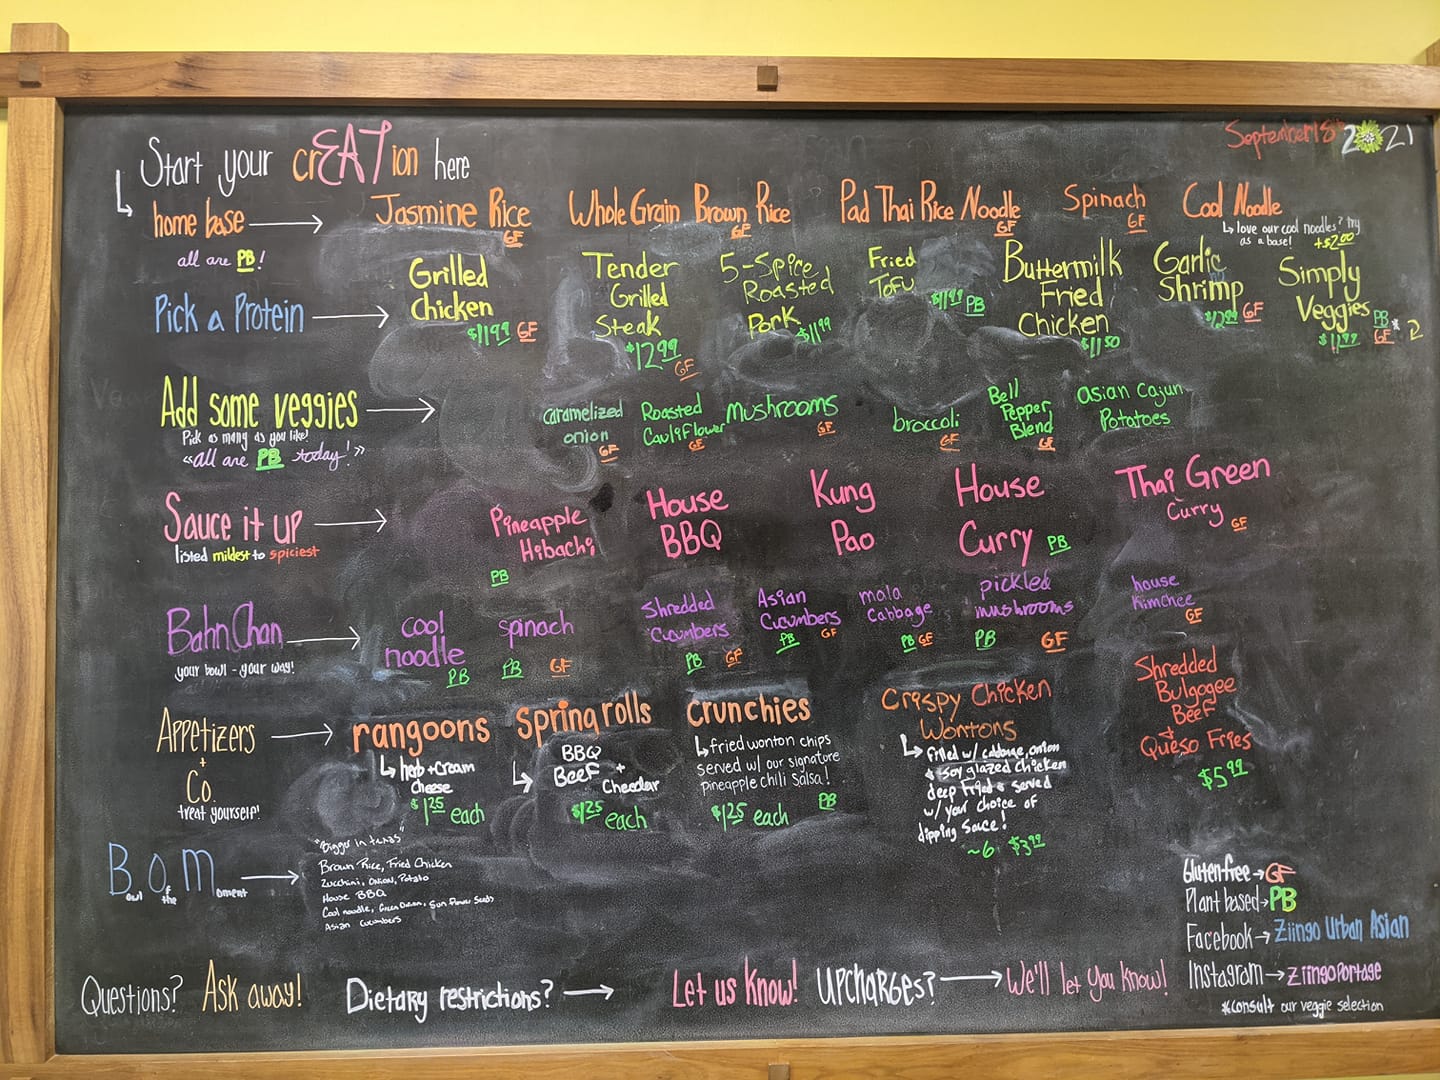 September 18th 2021
Start your crEATion here
home base
all are PB!
Jasmine Rice
GF
Whole Grain Brown Rice
GF
Pad Thai Rice Noodle
GF
Spinach
GF
Cool Noodle
love our cool noodles? try
as a base! +$2.00
Pick a Protein
Grilled
Chicken
$11.99 GF
Tender
Grilled
Steak
$12.99
GF
5-Spice
Roasted
Pork $11.99
Fried
Tofu
$11.99 PB
Buttermilk
Fried
Chicken
$11.50
Garlic
Shrimp
$12.99 GF
Simply
Veggies PB
$11.99 GF * 2
Add some veggies
Pick as many as you like!
"all are PB today!"
caramelized
onion
GF
Roasted
Cauliflower
GF
Mushrooms
GF
broccoli
GF
Bell
Pepper
Blend
GF
Asian Cajun
Potatoes
Sauce it up
listed mildest to spiciest
Pineapple
Hibachi
PB
House
BBQ
Kung
Pao
House
Curry PB
Thai Green
Curry GF
Bahn Chan
your bowl - your way!
cool
noodle
PB
spinach
PB GF
Shredded
Cucumbers
PB GF
Asian
Cucumbers
PB GF
mala
Cabbage
PB GF
pickled
mushrooms
PB GF
house
Kimchee
GF
Appetizers
+
Co.
treat yourself!
rangoons
herb + cream
cheese
$1.25 each
Spring rolls
BBQ
Beef +
Cheddar
$1.25 each
Crunchies
fried wonton chips
served w/ our signature
pineapple chili salsa!
$1.25 each PB
Crispy Chicken
Wontons
filled w/ cabbage, onion
& soy glazed chicken
deep fried & served
w/ your choice of
dipping sauce!
~6 $3.99
Shredded
Bulgogee
Beef
+
Queso Fries
$5.99
B.O.M
owl of the oment
"Bigger in texas"
Brown Rice, Fried Chicken
Zucchini, Onion, Potato
House BBQ
Cool noodle, Green Onion, Sun Flower Seeds
Asian Cucumbers
Gluten free → GF
Plant based → PB
Facebook → Ziingo Urban Asian
Instagram → ZiingoPortage
*consult our veggie selection
Questions? Ask away! Dietary restrictions? → Let us know! Upcharges? → We'll let you know!